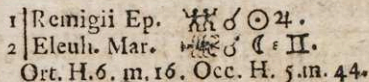 1 Remigii Ep. ☌ ☉ ♃.
2 Eleuh. Mar. ☌ ☾ ⸗ II.
Ort. H. 6. m. 16. Occ. H. 5. m. 44.